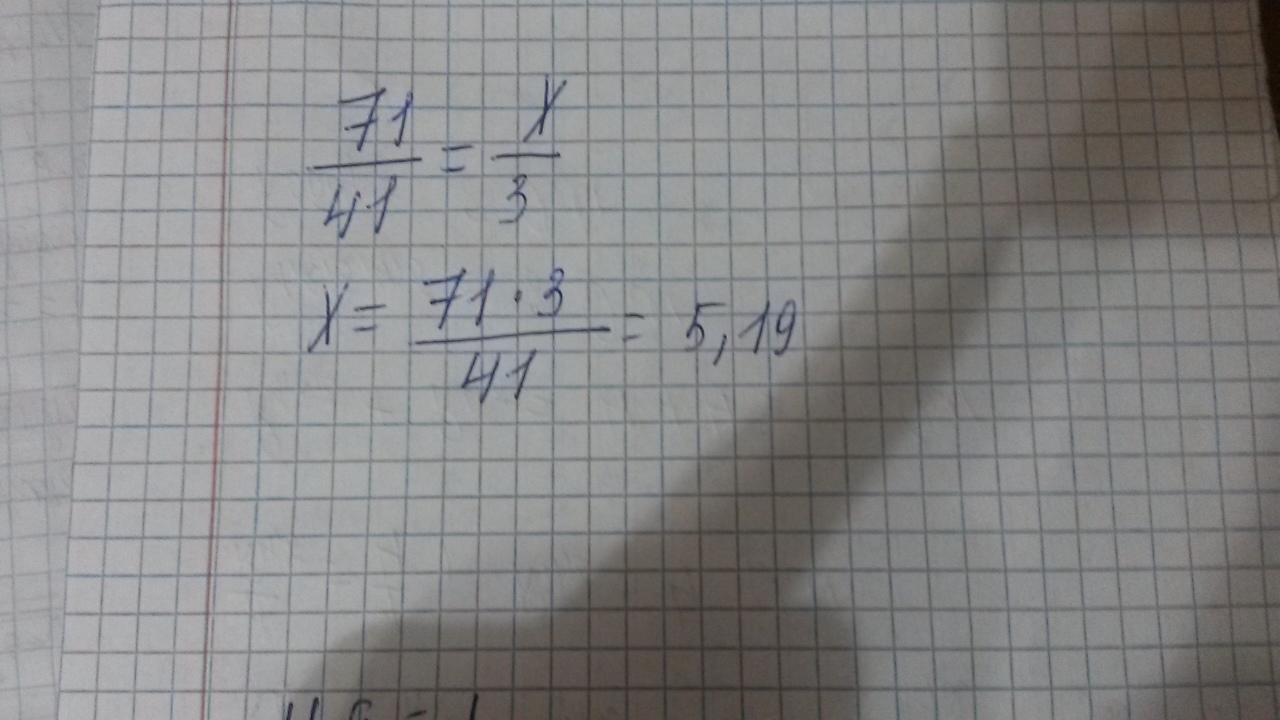 71/41 = x/3
x = 71·3/41 = 5,19